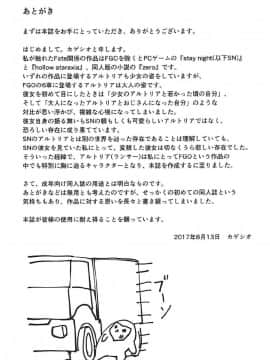 あとがき
まずは本誌をお手にとっていただき、ありがとうございます。
はじめまして。カゲシオと申します。
私が触れたFate関係の作品はFGOを除くとPCゲームの『stay night(以下SN)』
と『hollow ataraxia』、同人版の小説の『zero』です。
いずれの作品に登場するアルトリアも少女の姿をしていますが、
FGOの6章に登場するアルトリアは大人の姿です。
彼女を初めて目にしたときは「少女のアルトリアと若かった頃の自分」、
そして「大人になったアルトリアとおじさんになった自分」のような
対比が思い浮かび、複雑な心境になってしまいました。
彼女自身の語る
恐ろしい存在に成り果てています。
SNのアルトリアとは別の世界を辿った存在であることは理解していても、
SNの彼女を見ていた私にとって、変貌した彼女は切なくうら悲しい存在でした。
そういった経緯で、アルトリア(ランサー)は私にとってFGOという作品の
中でも特別に胸に迫るキャラクターとなり、本誌を作成するに至りました。
さて、成年向け同人誌の用途とは明白なものです。
あとがきなどは無用とも考えたのですが、せっかくの初めての同人誌という
気持ちもあり、作品に対する思いを長々と書き綴ってしまいました。
本誌が皆様の使用に耐え得ることを願っています。
2017年8月13日 カゲシオ
ブーン